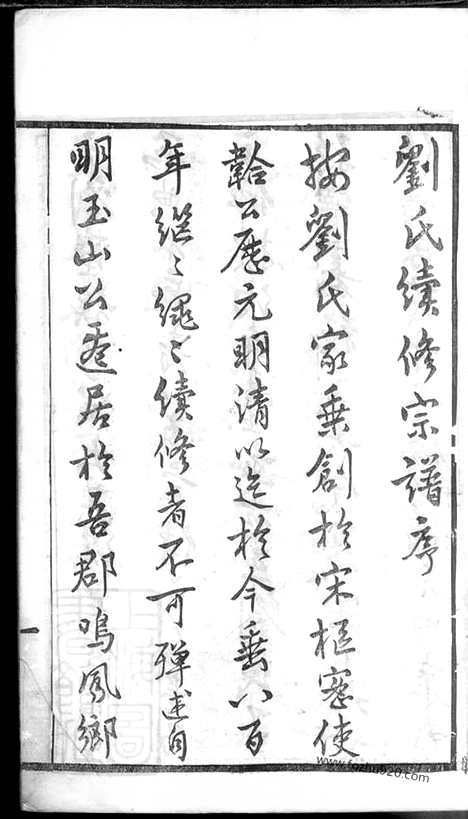 劉氏續修宗譜序
按劉氏家乘創於宋樞密使
韐公歷元明清以迄於今垂八百
年繼〻繩〻續修者不可殫述自
明玉山公遷居於吾郡鳴鳳鄉
一
www.fozhu920.com